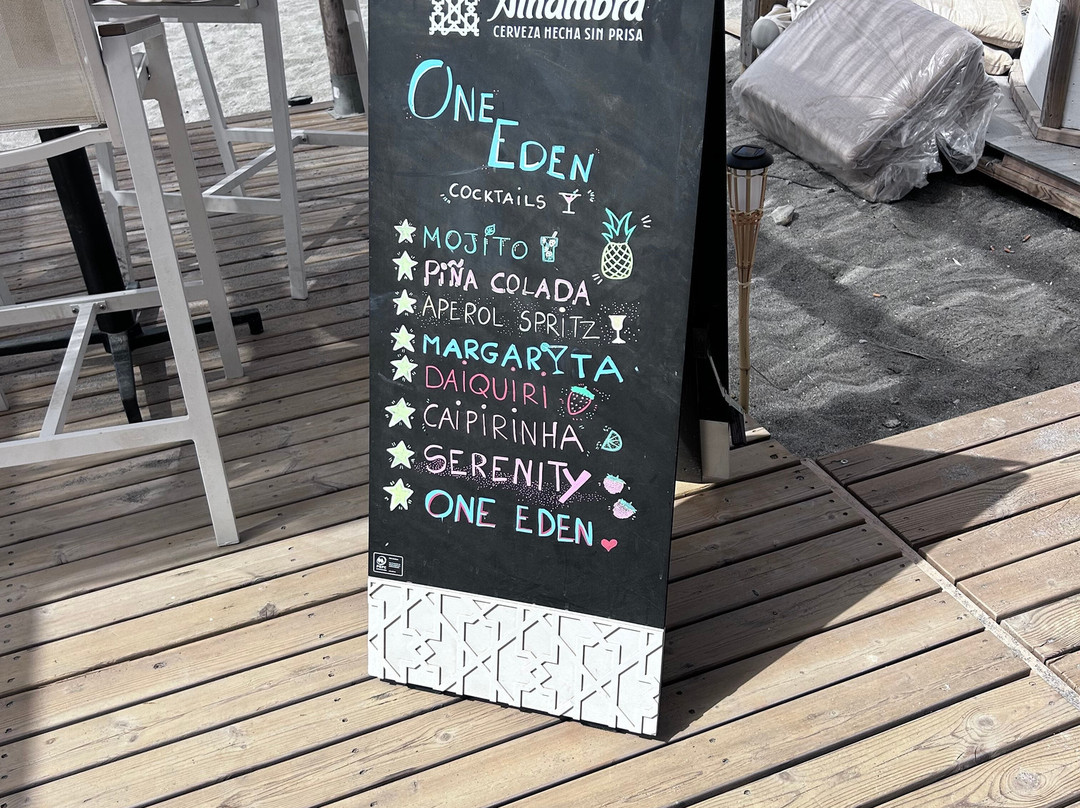 Alhambra
CERVEZA HECHA SIN PRISA
ONE
EDEN
COCKTAILS
MOJITO
PIÑA COLADA
APEROL SPRITZ
MARGARYTA
DAIQUIRI
CAIPIRINHA
SERENITY
ONE EDEN